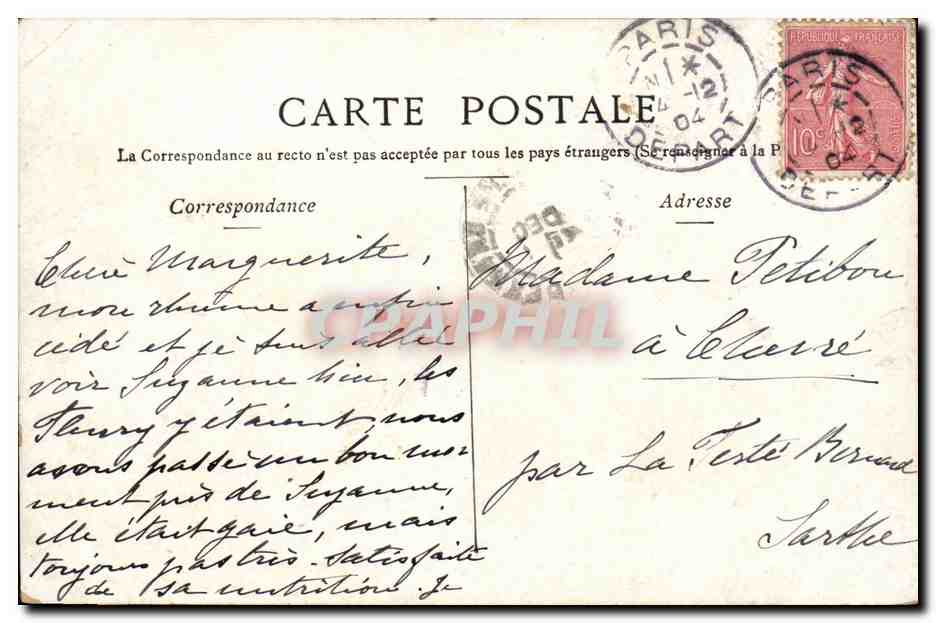 CARTE POSTALE
La Correspondance au recto n'est pas acceptée par tous les pays étrangers (Se renseigner à la P
Correspondance
Adresse
RÉPUBLIQUE FRANÇAISE
10c
PARIS
4 -12
04
DEPART
PARIS
04
DEPART
DEC
CPAPHIL
Chère Marguerite,
mon rhume a enfin
cédé et je suis allée
voir Suzanne hier, les
Fleury y étaient, nous
avons passé un bon mo-
ment près de Suzanne,
elle était gaie, mais
toujours pas très satisfaite
de sa nutrition. Je
Madame Petibon
à Cherré
par La Ferté Bernard
Sarthe